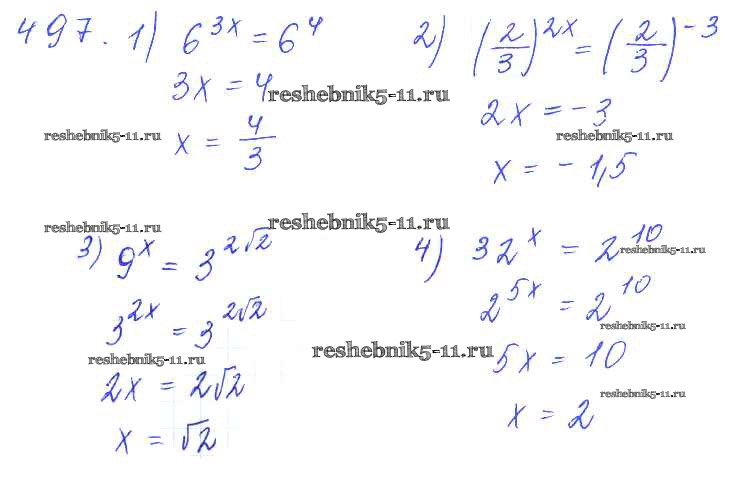 497. 1) 6^{3x} = 6^4
3x = 4
x = 4/3
2) (2/3)^{2x} = (2/3)^{-3}
2x = -3
x = -1,5
3) 9^x = 3^{2√2}
3^{2x} = 3^{2√2}
2x = 2√2
x = √2
4) 32^x = 2^{10}
2^{5x} = 2^{10}
5x = 10
x = 2
reshebnik5-11.ru
reshebnik5-11.ru
reshebnik5-11.ru
reshebnik5-11.ru
reshebnik5-11.ru
reshebnik5-11.ru
reshebnik5-11.ru
reshebnik5-11.ru
reshebnik5-11.ru
reshebnik5-11.ru